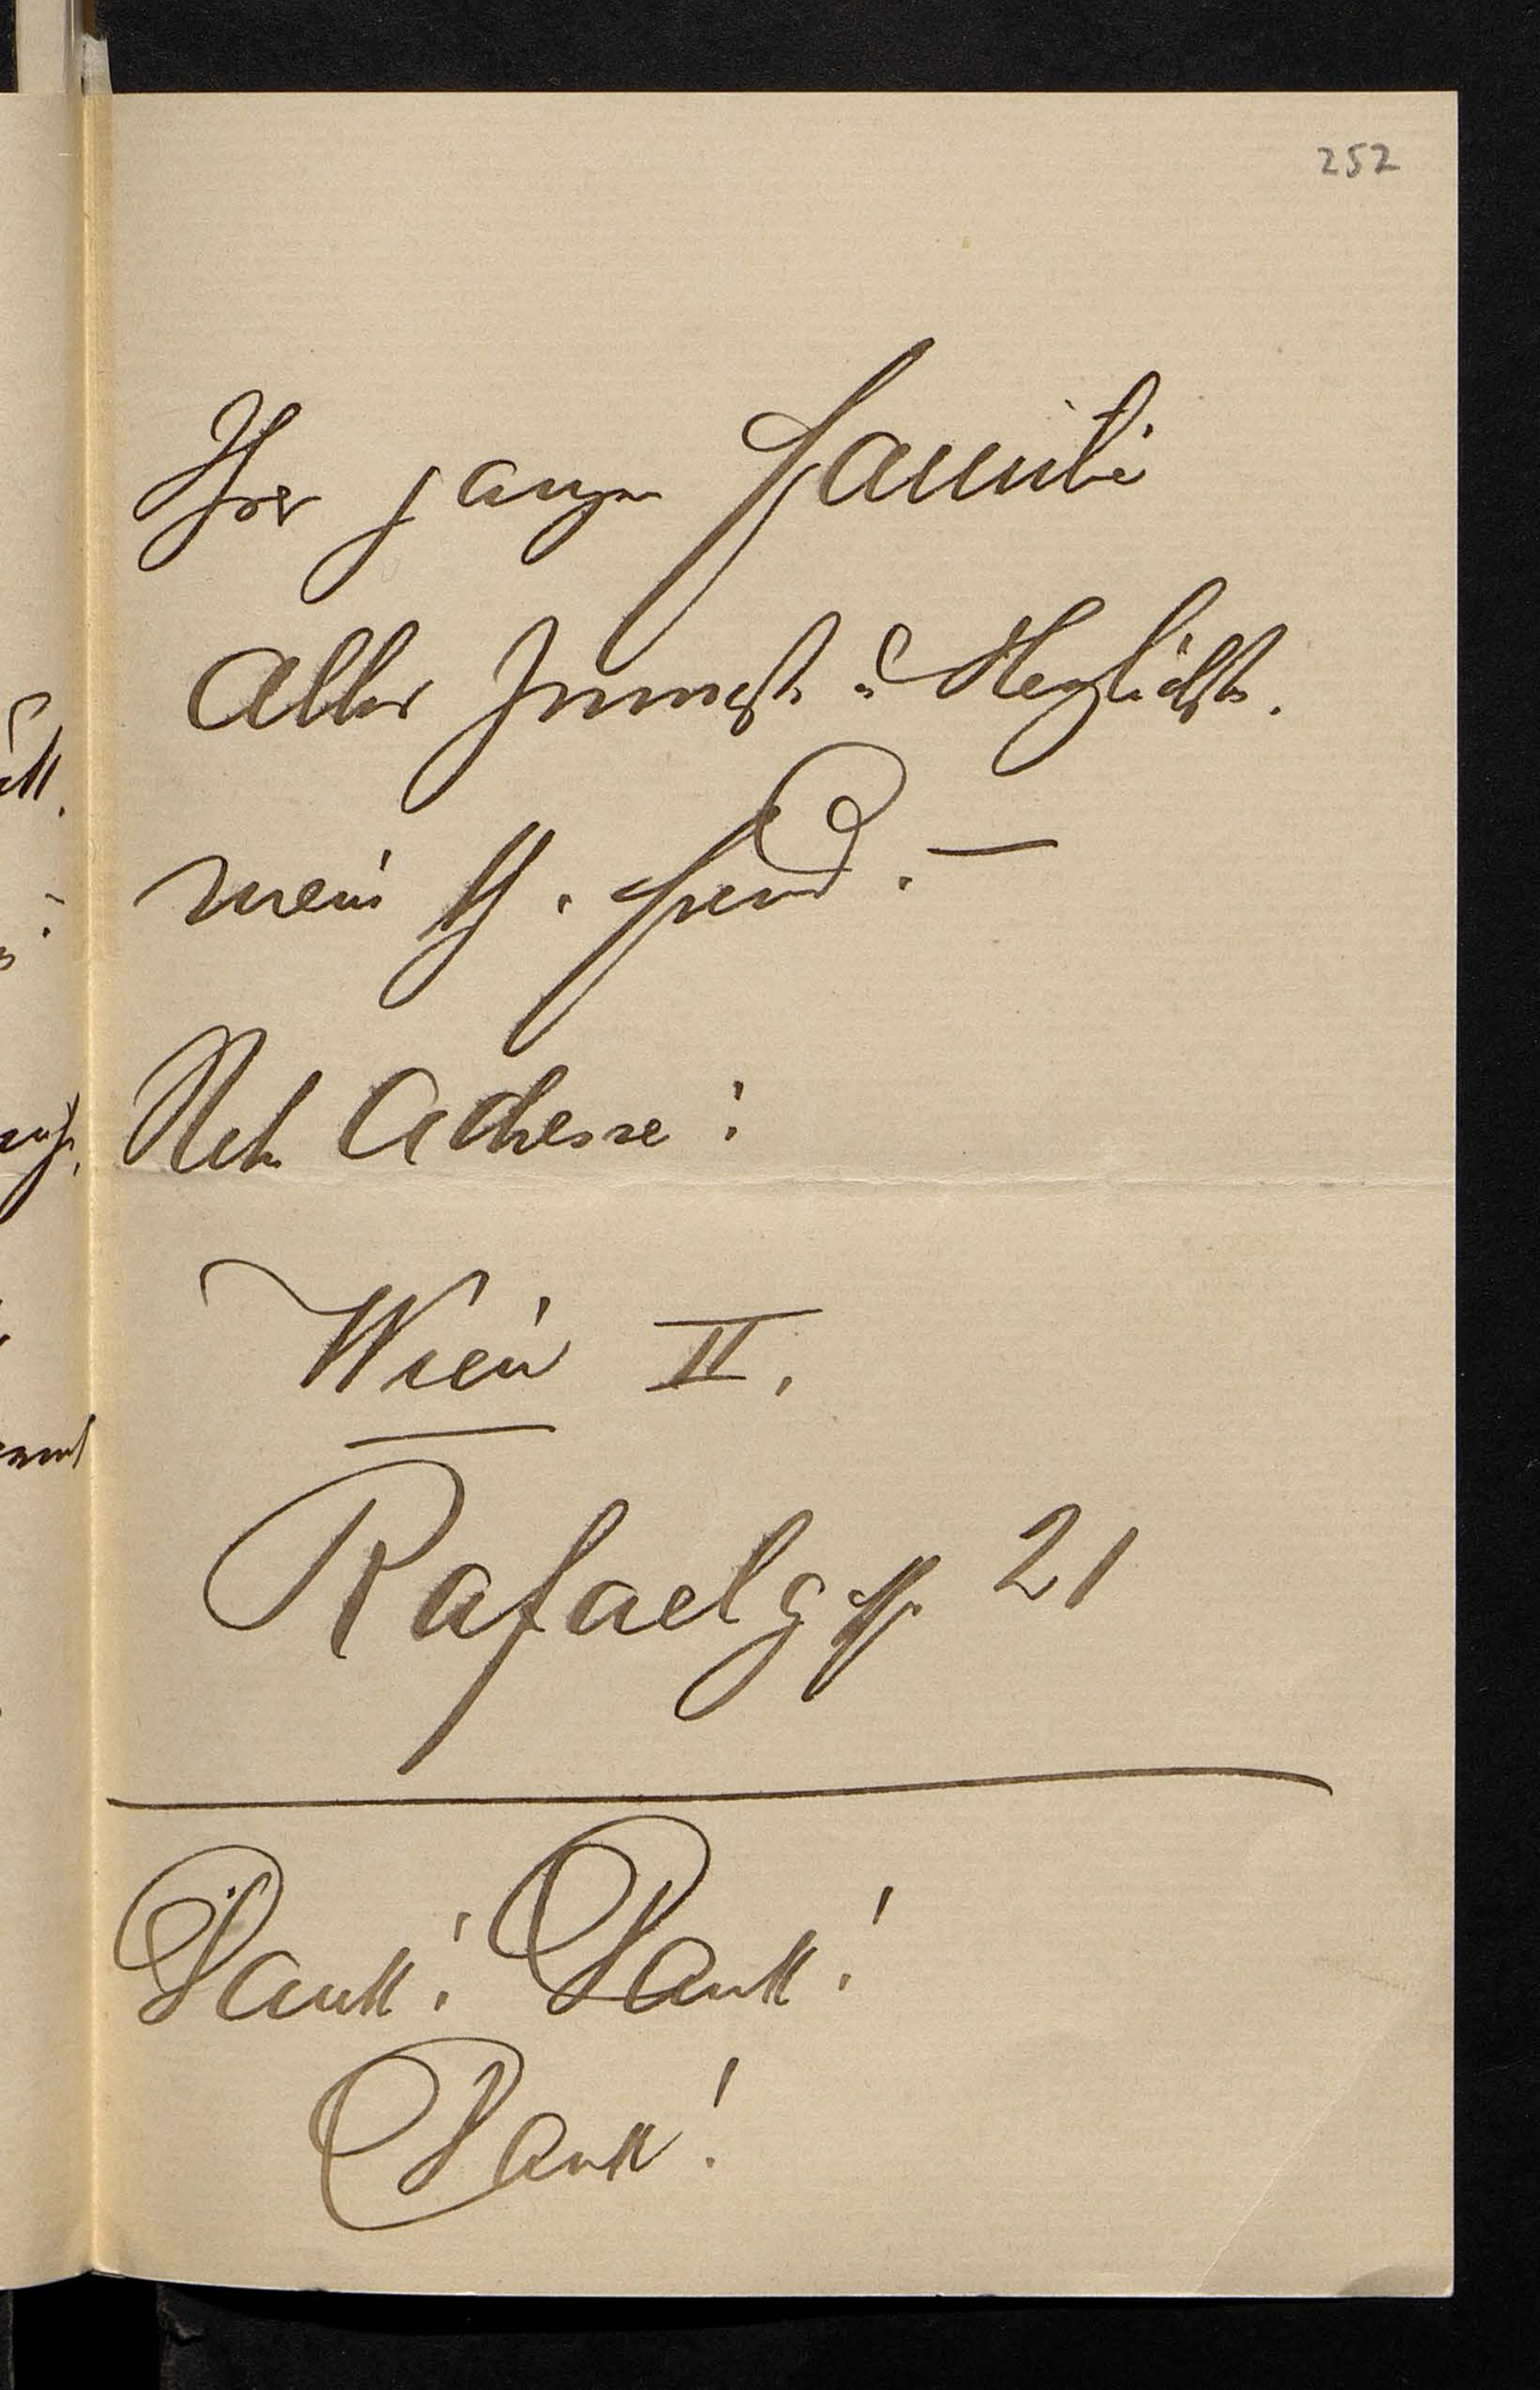 252
Ihrer ganzen Familie
Alles Innigste u Herzlichste.
mein h. Freund. –
Adresse:
Wien II.
Rafaelgasse 21
Dank! Dank!
Dank!